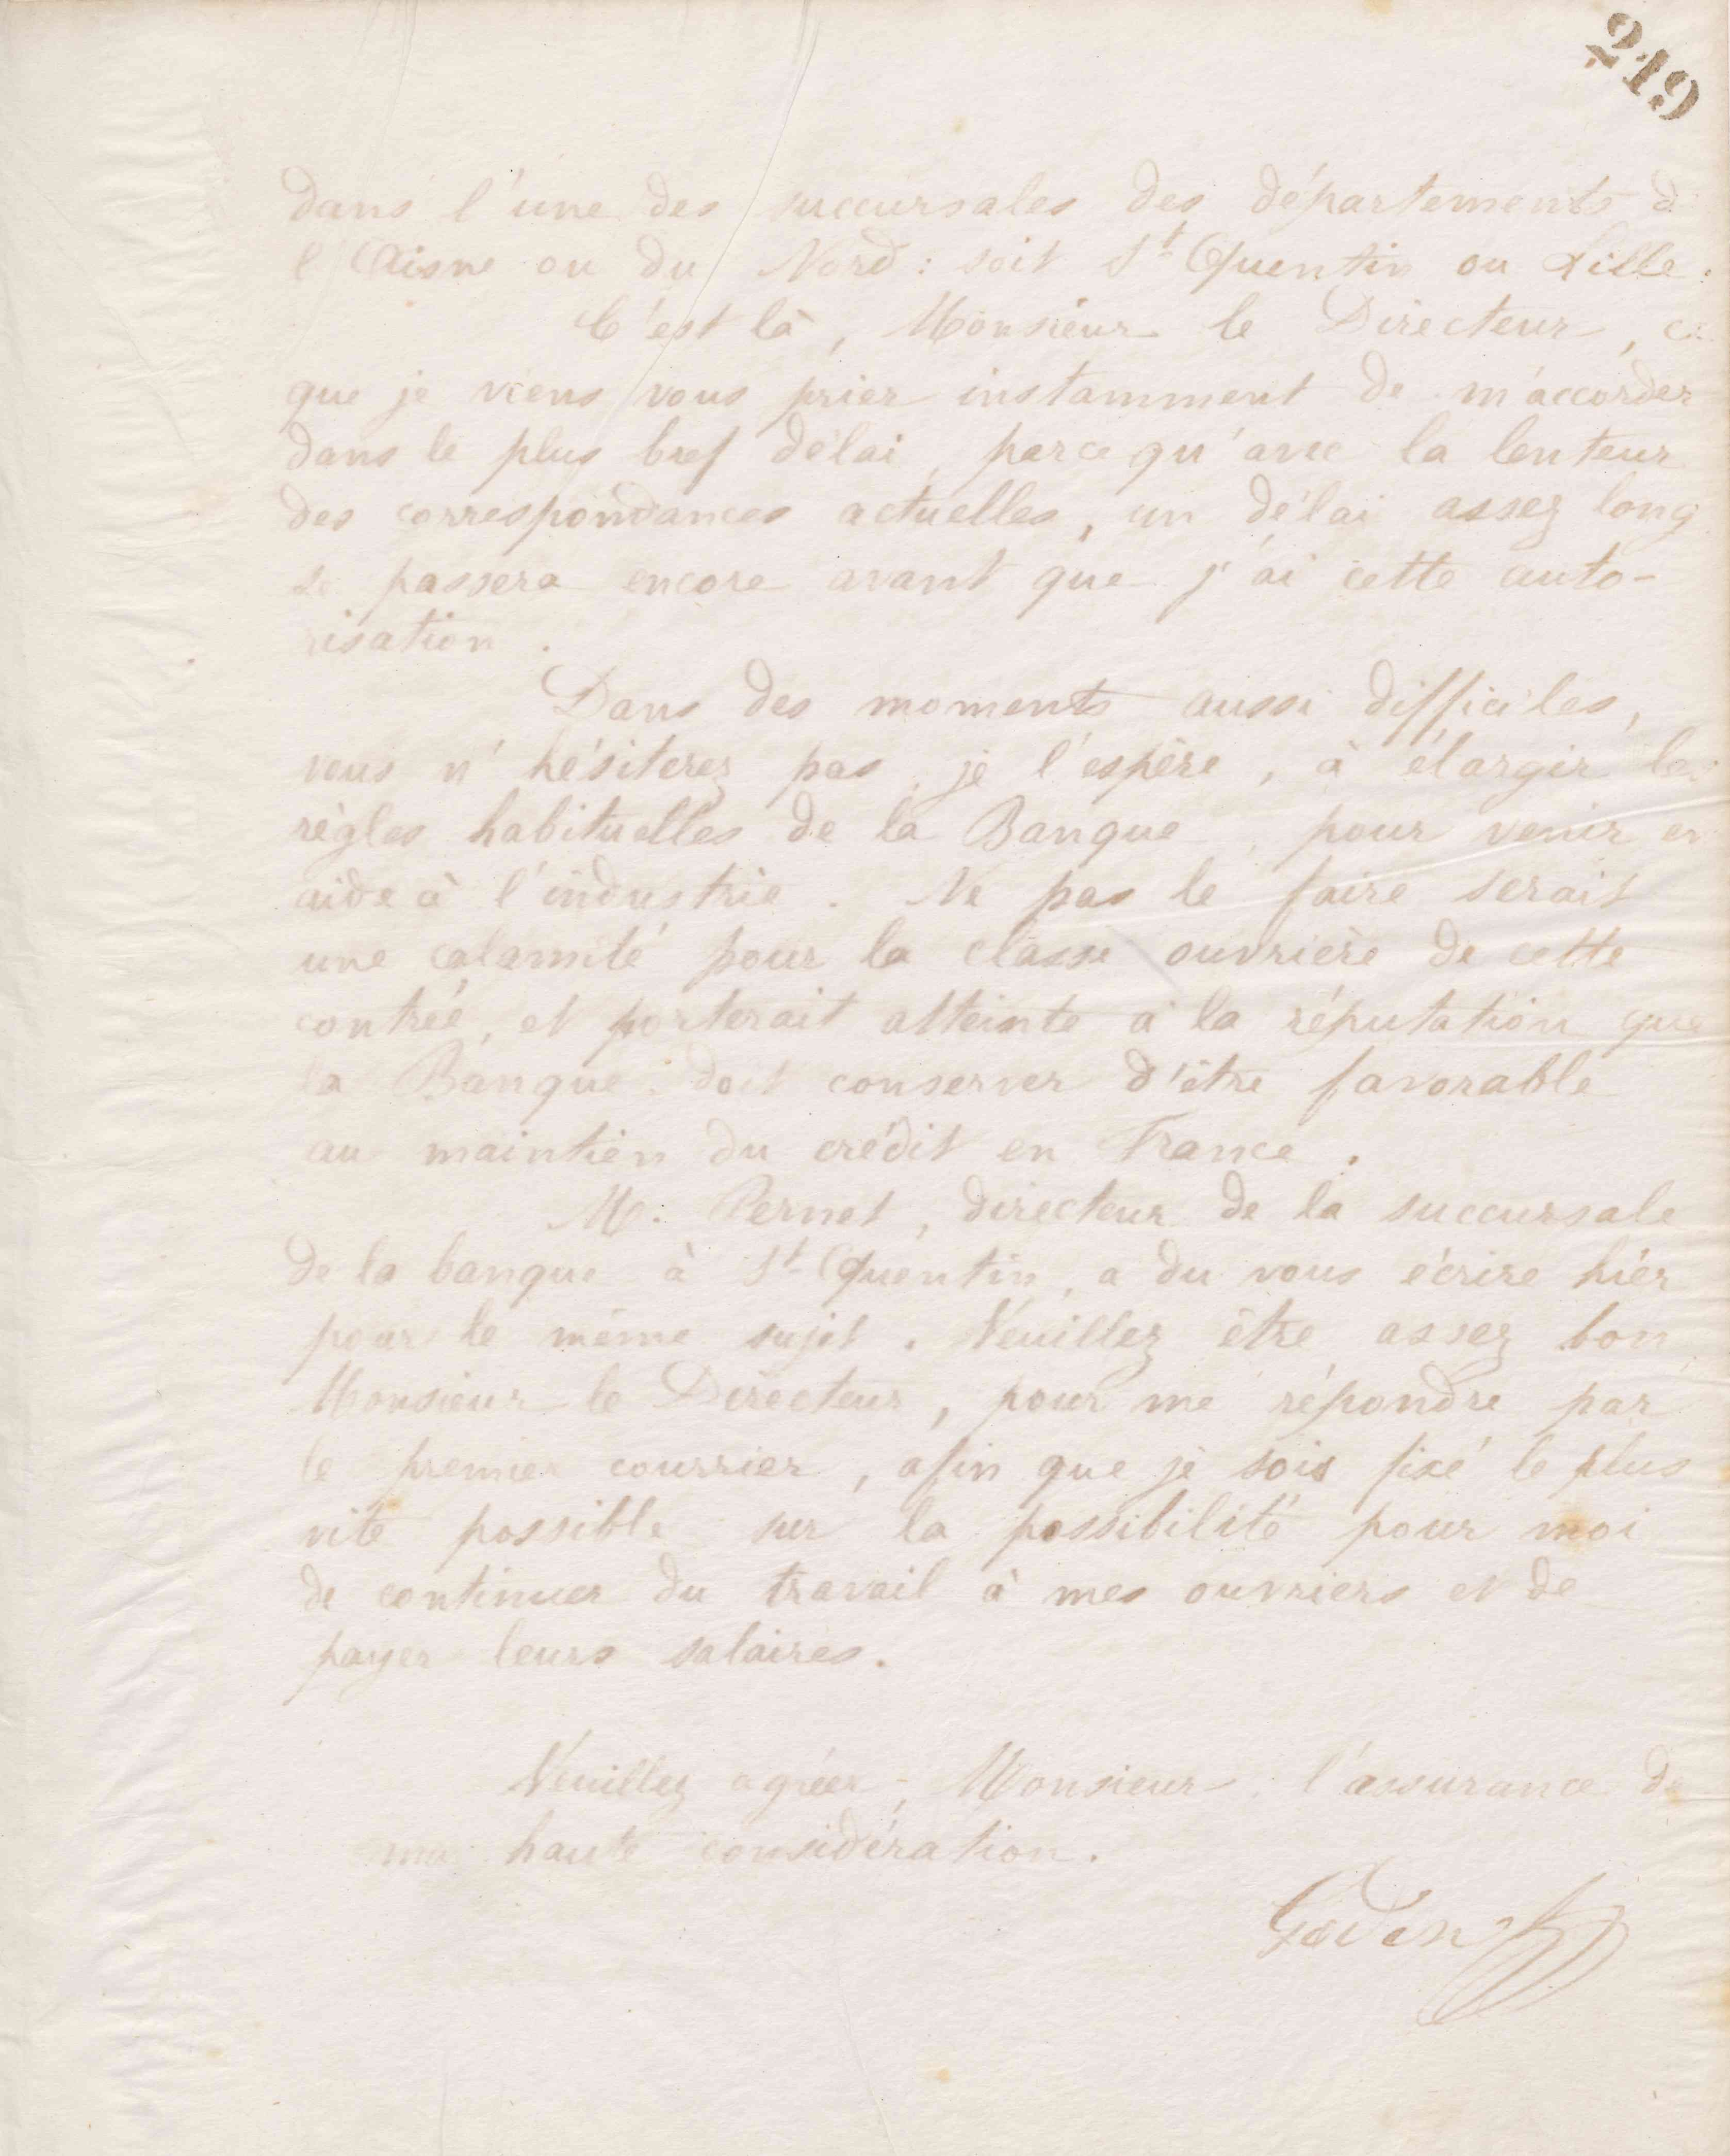 219
dans l'une des succursales des départements d
l'Aisne ou du Nord : soit St Quentin ou Lille.
C'est là, Monsieur le Directeur, ce
que je viens vous prier instamment de m'accorder
dans le plus bref délai, parcequ'avec la lenteur
des correspondances actuelles, un délai assez long
se passera encore avant que j'ai cette auto-
risation.
Dans des moments aussi difficiles,
vous n'hésiterez pas, je l'espère, à élargir les
règles habituelles de la Banque, pour venir en
aide à l'industrie. Ne pas le faire serait
une calamité pour la classe ouvrière de cette
contrée, et porterait atteinte à la réputation que
la Banque doit conserver d'être favorable
au maintien du crédit en France.
M. Pernet, directeur de la succursale
de la banque à St Quentin, a du vous écrire hier
pour le même sujet. Veuillez être assez bon,
Monsieur le Directeur, pour me répondre par
le premier courrier, afin que je sois fixé le plus
vite possible sur la possibilité pour moi
de continuer du travail à mes ouvriers et de
payer leurs salaires.
Veuillez agréer, Monsieur, l'assurance de
ma haute considération.
Godin